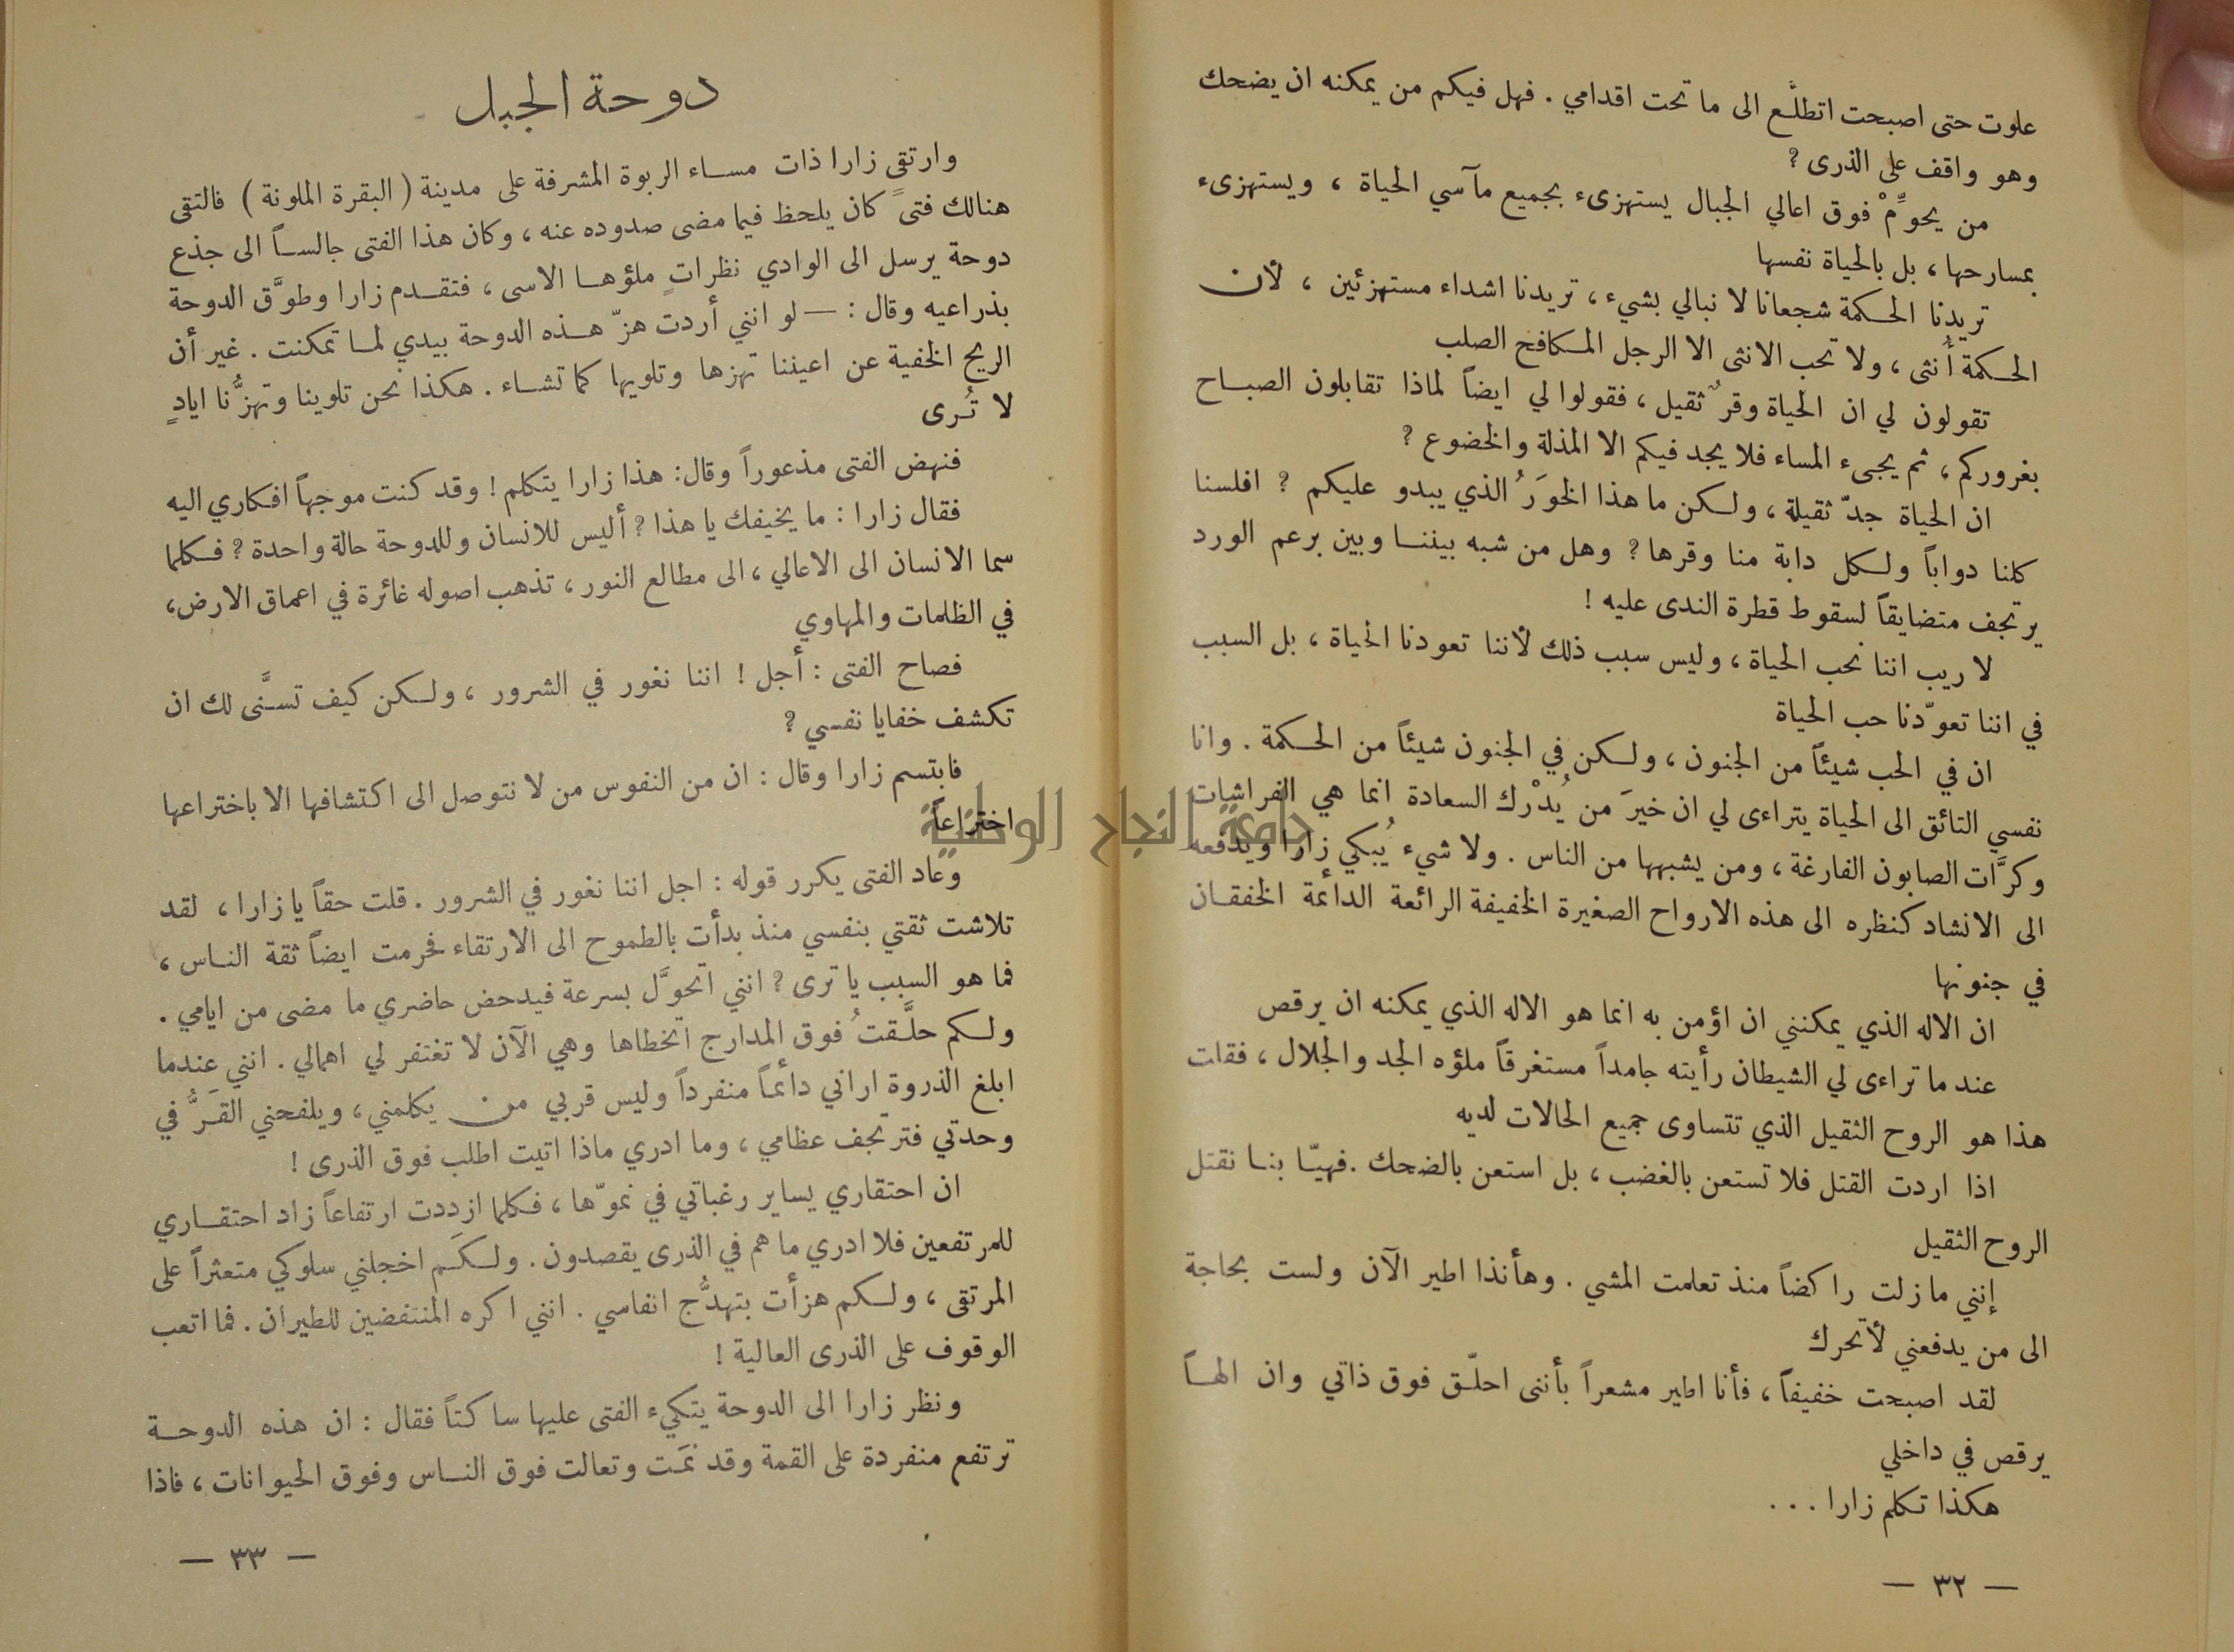 علوت حتى اصبحت اتطلَّع الى ما تحت اقدامي . فهل فيكم من يمكنه ان يضحك
وهو واقف على الذرى ؟
من يحوِّمْ فوق اعالي الجبال يستهزىء بجميع مآسي الحياة ، ويستهزىء
بمسارحها ، بل بالحياة نفسها
تريدنا الحكمة شجعانا لا نبالي بشيء ، تريدنا اشداء مستهزئين ، لأن
الحكمة أُنثى ، ولا تحب الانثى الا الرجل المكافح الصلب
تقولون لي ان الحياة وقرٌ ثقيل ، فقولوا لي ايضاً لماذا تقابلون الصباح
بغروركم ، ثم يجيء المساء فلا يجد فيكم الا المذلة والخضوع ؟
ان الحياة جدّ ثقيلة ، ولكن ما هذا الخوَرُ الذي يبدو عليكم ؟ افلسنا
كلنا دواباً ولكل دابة منا وقرها ؟ وهل من شبه بيننا وبين برعم الورد
يرتجف متضايقاً لسقوط قطرة الندى عليه !
لا ريب اننا نحب الحياة ، وليس سبب ذلك لأننا تعودنا الحياة ، بل السبب
في اننا تعوّدنا حب الحياة
ان في الحب شيئاً من الجنون ، ولكن في الجنون شيئاً من الحكمة . وانا
نفسي التائق الى الحياة يتراءى لي ان خيرَ من يُدْرك السعادة انما هي الفراشات
وكرَّات الصابون الفارغة ، ومن يشبهها من الناس . ولا شيء يُبكي زارا ويدفعه
الى الانشاد كنظره الى هذه الارواح الصغيرة الخفيفة الرائعة الدائمة الخفقان
في جنونها
ان الاله الذي يمكنني ان اؤمن به انما هو الاله الذي يمكنه ان يرقص
عند ما تراءى لي الشيطان رأيته جامداً مستغرقاً ملؤه الجد والجلال ، فقلت
هذا هو الروح الثقيل الذي تتساوى جميع الحالات لديه
اذا اردت القتل فلا تستعن بالغضب ، بل استعن بالضحك . فهيّا بنا نقتل
الروح الثقيل
إنني ما زلت راكضاً منذ تعلمت المشي . وهأنذا اطير الآن ولست بحاجة
الى من يدفعني لأتحرك
لقد اصبحت خفيفاً ، فأنا اطير مشعراً بأننى احلّق فوق ذاتي وان الهاً
يرقص في داخلي
هكذا تكلم زارا . . .
— ٣٢ —
دوحة الجبل
وارتقى زارا ذات مساء الربوة المشرفة على مدينة ( البقرة الملونة ) فالتقى
هنالك فتىً كان يلحظ فيما مضى صدوده عنه ، وكان هذا الفتى جالساً الى جذع
دوحة يرسل الى الوادي نظراتٍ ملؤها الاسى ، فتقدم زارا وطوَّق الدوحة
بذراعيه وقال : — لو انني أردت هزّ هذه الدوحة بيدي لما تمكنت . غير أن
الريح الخفية عن اعيننا تهزها وتلويها كما تشاء . هكذا نحن تلوينا وتهزُّنا ايادٍ
لا تُرى
فنهض الفتى مذعوراً وقال : هذا زارا يتكلم ! وقد كنت موجهاً افكاري اليه
فقال زارا : ما يخيفك يا هذا ؟ أليس للانسان وللدوحة حالة واحدة ؟ فكلما
سما الانسان الى الاعالي ، الى مطالع النور ، تذهب اصوله غائرة في اعماق الارض ،
في الظلمات والمهاوي
فصاح الفتى : أجل ! اننا نغور في الشرور ، ولكن كيف تسنَّى لك ان
تكشف خفايا نفسي ؟
فابتسم زارا وقال : ان من النفوس من لا نتوصل الى اكتشافها الا باختراعها
اختراعاً
وعاد الفتى يكرر قوله : اجل اننا نغور في الشرور . قلت حقاً يا زارا ، لقد
تلاشت ثقتي بنفسي منذ بدأت بالطموح الى الارتقاء فحرمت ايضاً ثقة الناس ،
فما هو السبب يا ترى ؟ انني اتحوَّل بسرعة فيدحض حاضري ما مضى من ايامي .
ولكم حلَّقتُ فوق المدارج اتخطاها وهي الآن لا تغتفر لي اهمالي . انني عندما
ابلغ الذروة اراني دائماً منفرداً وليس قربي من يكلمني ، ويلفحني القَرُّ في
وحدتي فترتجف عظامي ، وما ادري ماذا اتيت اطلب فوق الذرى !
ان احتقاري يساير رغباتي في نموّها ، فكلما ازددت ارتفاعاً زاد احتقاري
للمرتفعين فلا ادري ما هم في الذرى يقصدون . ولكم اخجلني سلوكي متعثراً على
المرتقى ، ولكم هزأت بتهدُّج انفاسي . انني اكره المنتفضين للطيران . فما اتعب
الوقوف على الذرى العالية !
ونظر زارا الى الدوحة يتكيء الفتى عليها ساكتاً فقال : ان هذه الدوحة
ترتفع منفردة على القمة وقد نمَت وتعالت فوق الناس وفوق الحيوانات ، فاذا
— ٣٣ —
جامعة النجاح الوطنية